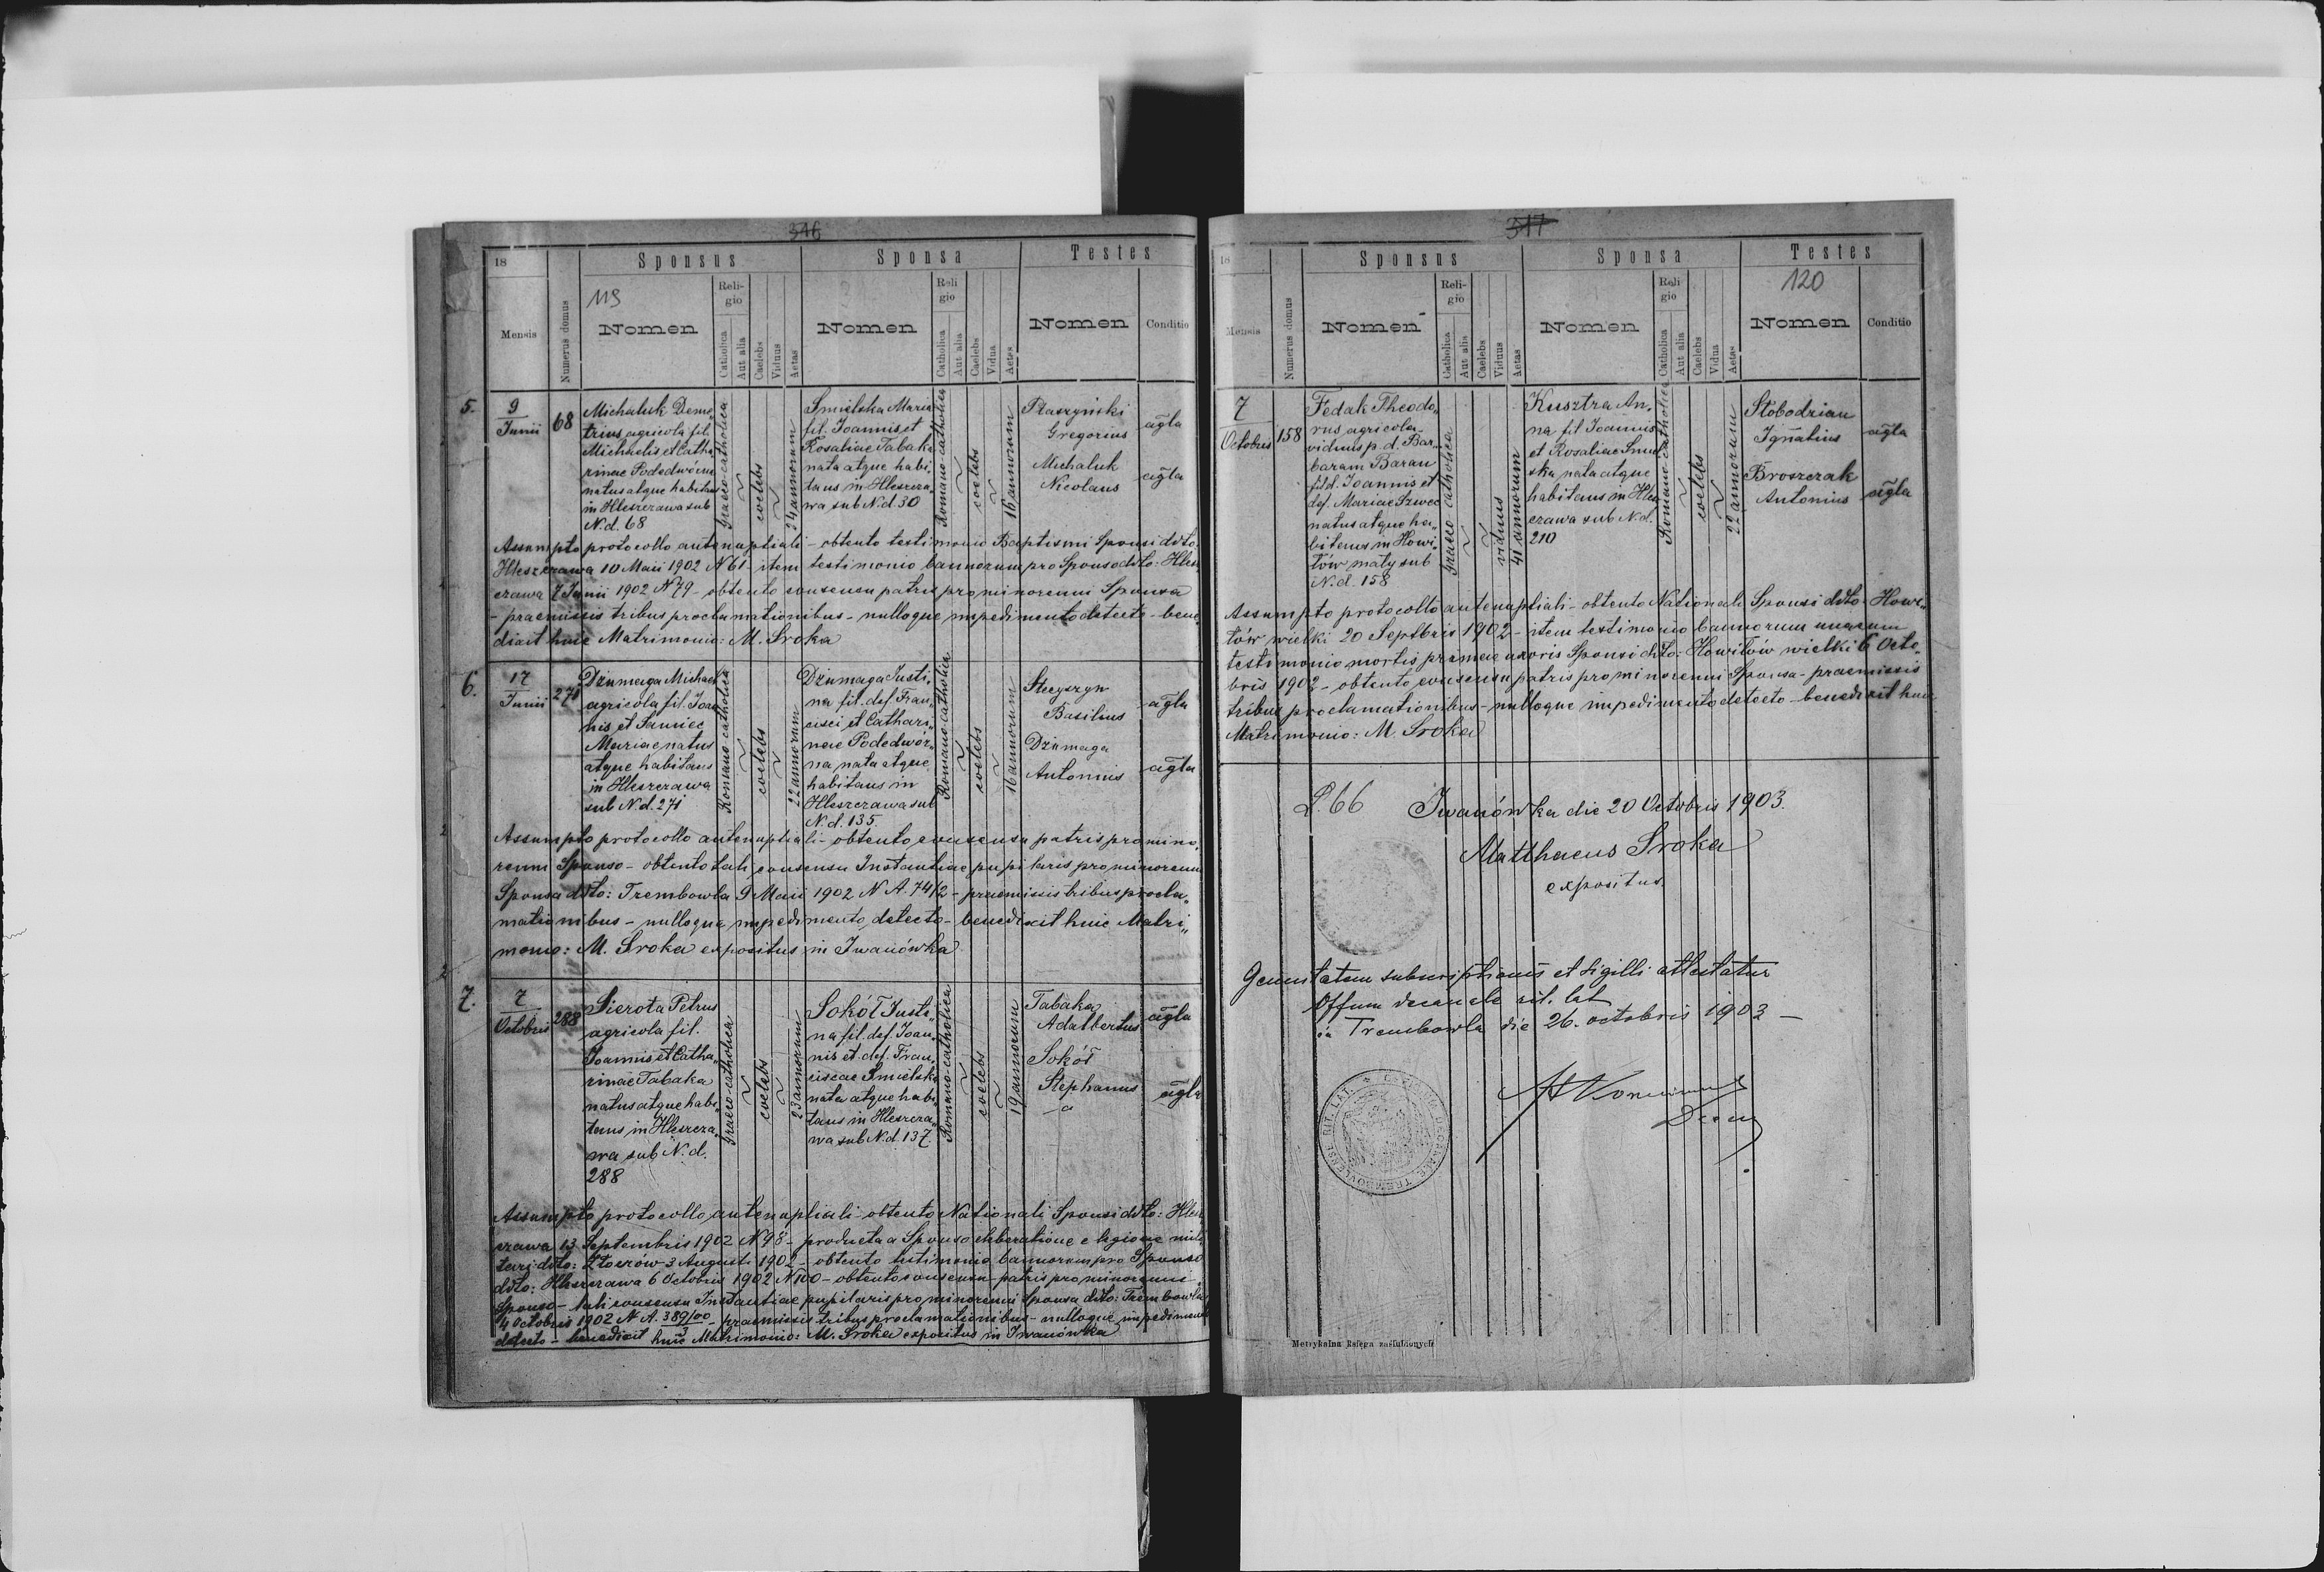 346
18
Sponsus
Sponsa
Testes
Mensis
Numerus domus
119
Nomen
Reli-
gio
Catholica
Aut alia
Caelebs
Viduus
Aetas
Nomen
Reli
gio
Catholica
Aut alia
Caelebs
Vidua
Aetas
Nomen
Conditio
5.
9
Junii
68
Michaluk Deme„
trius agricola fil.
Michaelis et Catha„
rinae Pododwórna
natus atque habitans
in Hleszczawa sub
N. d. 68
Graeco-catholica
coelebs
24 annorum
Smielska Maria
fil. Joannis et
Rosaliae Tabaka
nata atque habi„
tans in Hleszcza„
wa sub N. d. 30
Romano-catholica
coelebs
16 annorum
Ptaszyński
Gregorius
agla
Michaluk
Nicolaus
agla
Assumpto protocollo antenuptiali - obtento testimonio Baptismi Sponsi ddto.
Hleszczawa 10 Maii 1902 N 61 - item testimonio bannorum pro Sponso ddto: Hlesz
czawa 7 Junii 1902 N 79 - obtento consensu patris pro minorenni Sponsa
- praemissis tribus proclamationibus - nulloque impedimento detecto - bene„
dixit huic Matrimonio: M. Sroka
6.
17
Junii
271
Dżumaga Michael
agricola fil. Joan
nis et Saniec
Mariae natus
atque habitans
in Hleszczawa
sub N. d. 271
Romano-catholica
coelebs
22 annorum
Dżumaga Justi„
na fil. def. Fran„
cisci et Cathari„
nae Pododwór„
na nata atque
habitans in
Hleszczawa sub
N. d. 135.
Romano-catholica
coelebs
16 annorum
Stecyszyn
Basilius
agla
Dżumaga
Antonius
agla
Assumpto protocollo antenuptiali - obtento consensu patris pro mino„
renni Sponso - obtento tali consensu Instantiae pupilaris pro minorenni
Sponsa ddto: Trembowla 9 Maii 1902 N A. 74/2 - praemissis tribus procla„
mationibus - nulloque impedimento detecto - benedixit huic Matri„
monio: M. Sroka expositus in Iwanówka
7.
7
Octobris
288
Sierota Petrus
agricola fil.
Joannis et Catha„
rinae Tabaka
natus atque habi„
tans in Hleszcza„
wa sub N. d.
288
Graeco-catholica
coelebs
23 annorum
Sokół Justi„
na fil. def. Joan„
nis et def. Fran„
ciscae Smielska
nata atque habi„
tans in Hleszcza„
wa sub N. d. 137.
Romano-catholica
coelebs
19 annorum
Tabaka
Adalbertus
agla
Sokół
Stephanus
agla
Assumpto protocollo antenuptiali - obtento Nationali Sponsi ddto: Hlesz
czawa 13 Septembris 1902 N 98 - producta a Sponso eliberatione e legione mili
tari ddto: Złoczów 3 Augusti 1902 - obtento testimonio bannorum pro Sponso
ddto: Hleszczawa 6 Octobris 1902 N 100 - obtento consensu patris pro minorenni
Sponso - tali consensu Instantiae pupilaris pro minorenni Sponsa ddto: Trembowla
4 Octobris 1902 N A. 389/00 - praemissis tribus proclamationibus - nulloque impedimento
3
detecto - benedixit huic Matrimonio: M. Sroka expositus in Iwanówka
347
18
Sponsus
Sponsa
Testes
Mensis
Numerus domus
Nomen
Reli-
gio
Catholica
Aut alia
Caelebs
Viduus
Aetas
Nomen
Reli
gio
Catholica
Aut alia
Caelebs
Vidua
Aetas
120
Nomen
Conditio
7
Octobris
158
Fedak Theodo„
rus agricola
viduus p. d. Bar„
baram Baran
fil d. Joannis et
def. Mariae Szwec
natus atque ha„
bitans in Howi„
łów mały sub
N. d. 158
Graeco catholica
viduus
41 annorum
Kusztra An„
na fil Joannis
et Rosaliae Smiel
ska nata atque
habitans in Hlesz
czawa sub N. d.
210
Romano-catholica
coelebs
22 annorum
Słobodzian
Ignatius
agla
Broszczak
Antonius
agla
Assumpto protocollo antenuptiali - obtento Nationali Sponsi ddto: Howi„
łów wielki 20 Septbris 1902 - item testimonio bannorum unacum
testimonio mortis primae uxoris Sponsi ddto: Howiłów wielki 6 Octo„
bris 1902 - obtento consensu patris pro minorenni Sponsa - praemissis
tribus proclamationibus - nulloque impedimento detecto - benedixit huic
Matrimonio: M. Sroka
L. 66
Iwanówka die 20 Octobris 1903.
Matthaeus Sroka
expositus
Genuitatem subscriptionis et sigilli attestatur
Offum decanale rit. lat
in Trembowla die 26. octobris 1903 -
Metrykalna księga zaślubionych